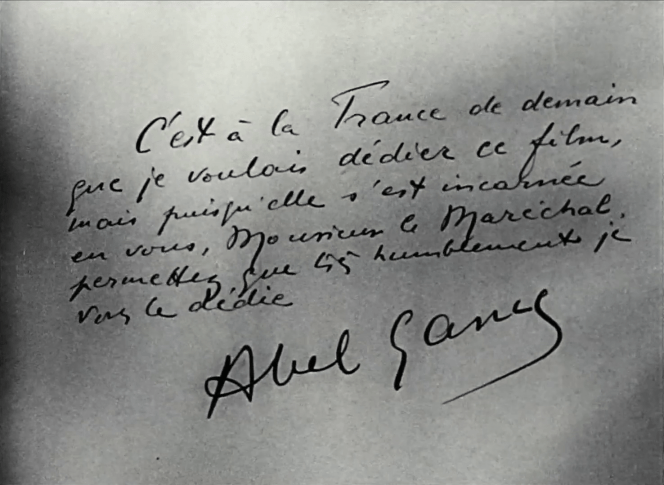 C'est à la France de demain
que je voulais dédier ce film,
mais puisqu'elle s'est incarnée
en vous, Monsieur le Maréchal,
permettez que très humblement je
vous le dédie
Abel Gance